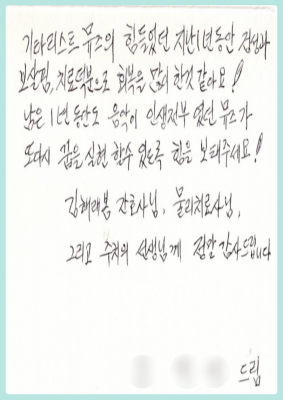 기타리스트 뮤즈의 힘들었던 지난1년동안 정성과
보살핌, 치료덕분으로 회복을 많이 한것 같아요!
남은 1년 동안도 음악이 인생전부 였던 뮤즈가
또다시 꿈을 실현 할수 있도록 힘을 보태주세요!
김해래봄 간호사님, 물리치료사님,
그리고 주치의 선생님께 정말 감사드립니다
드림